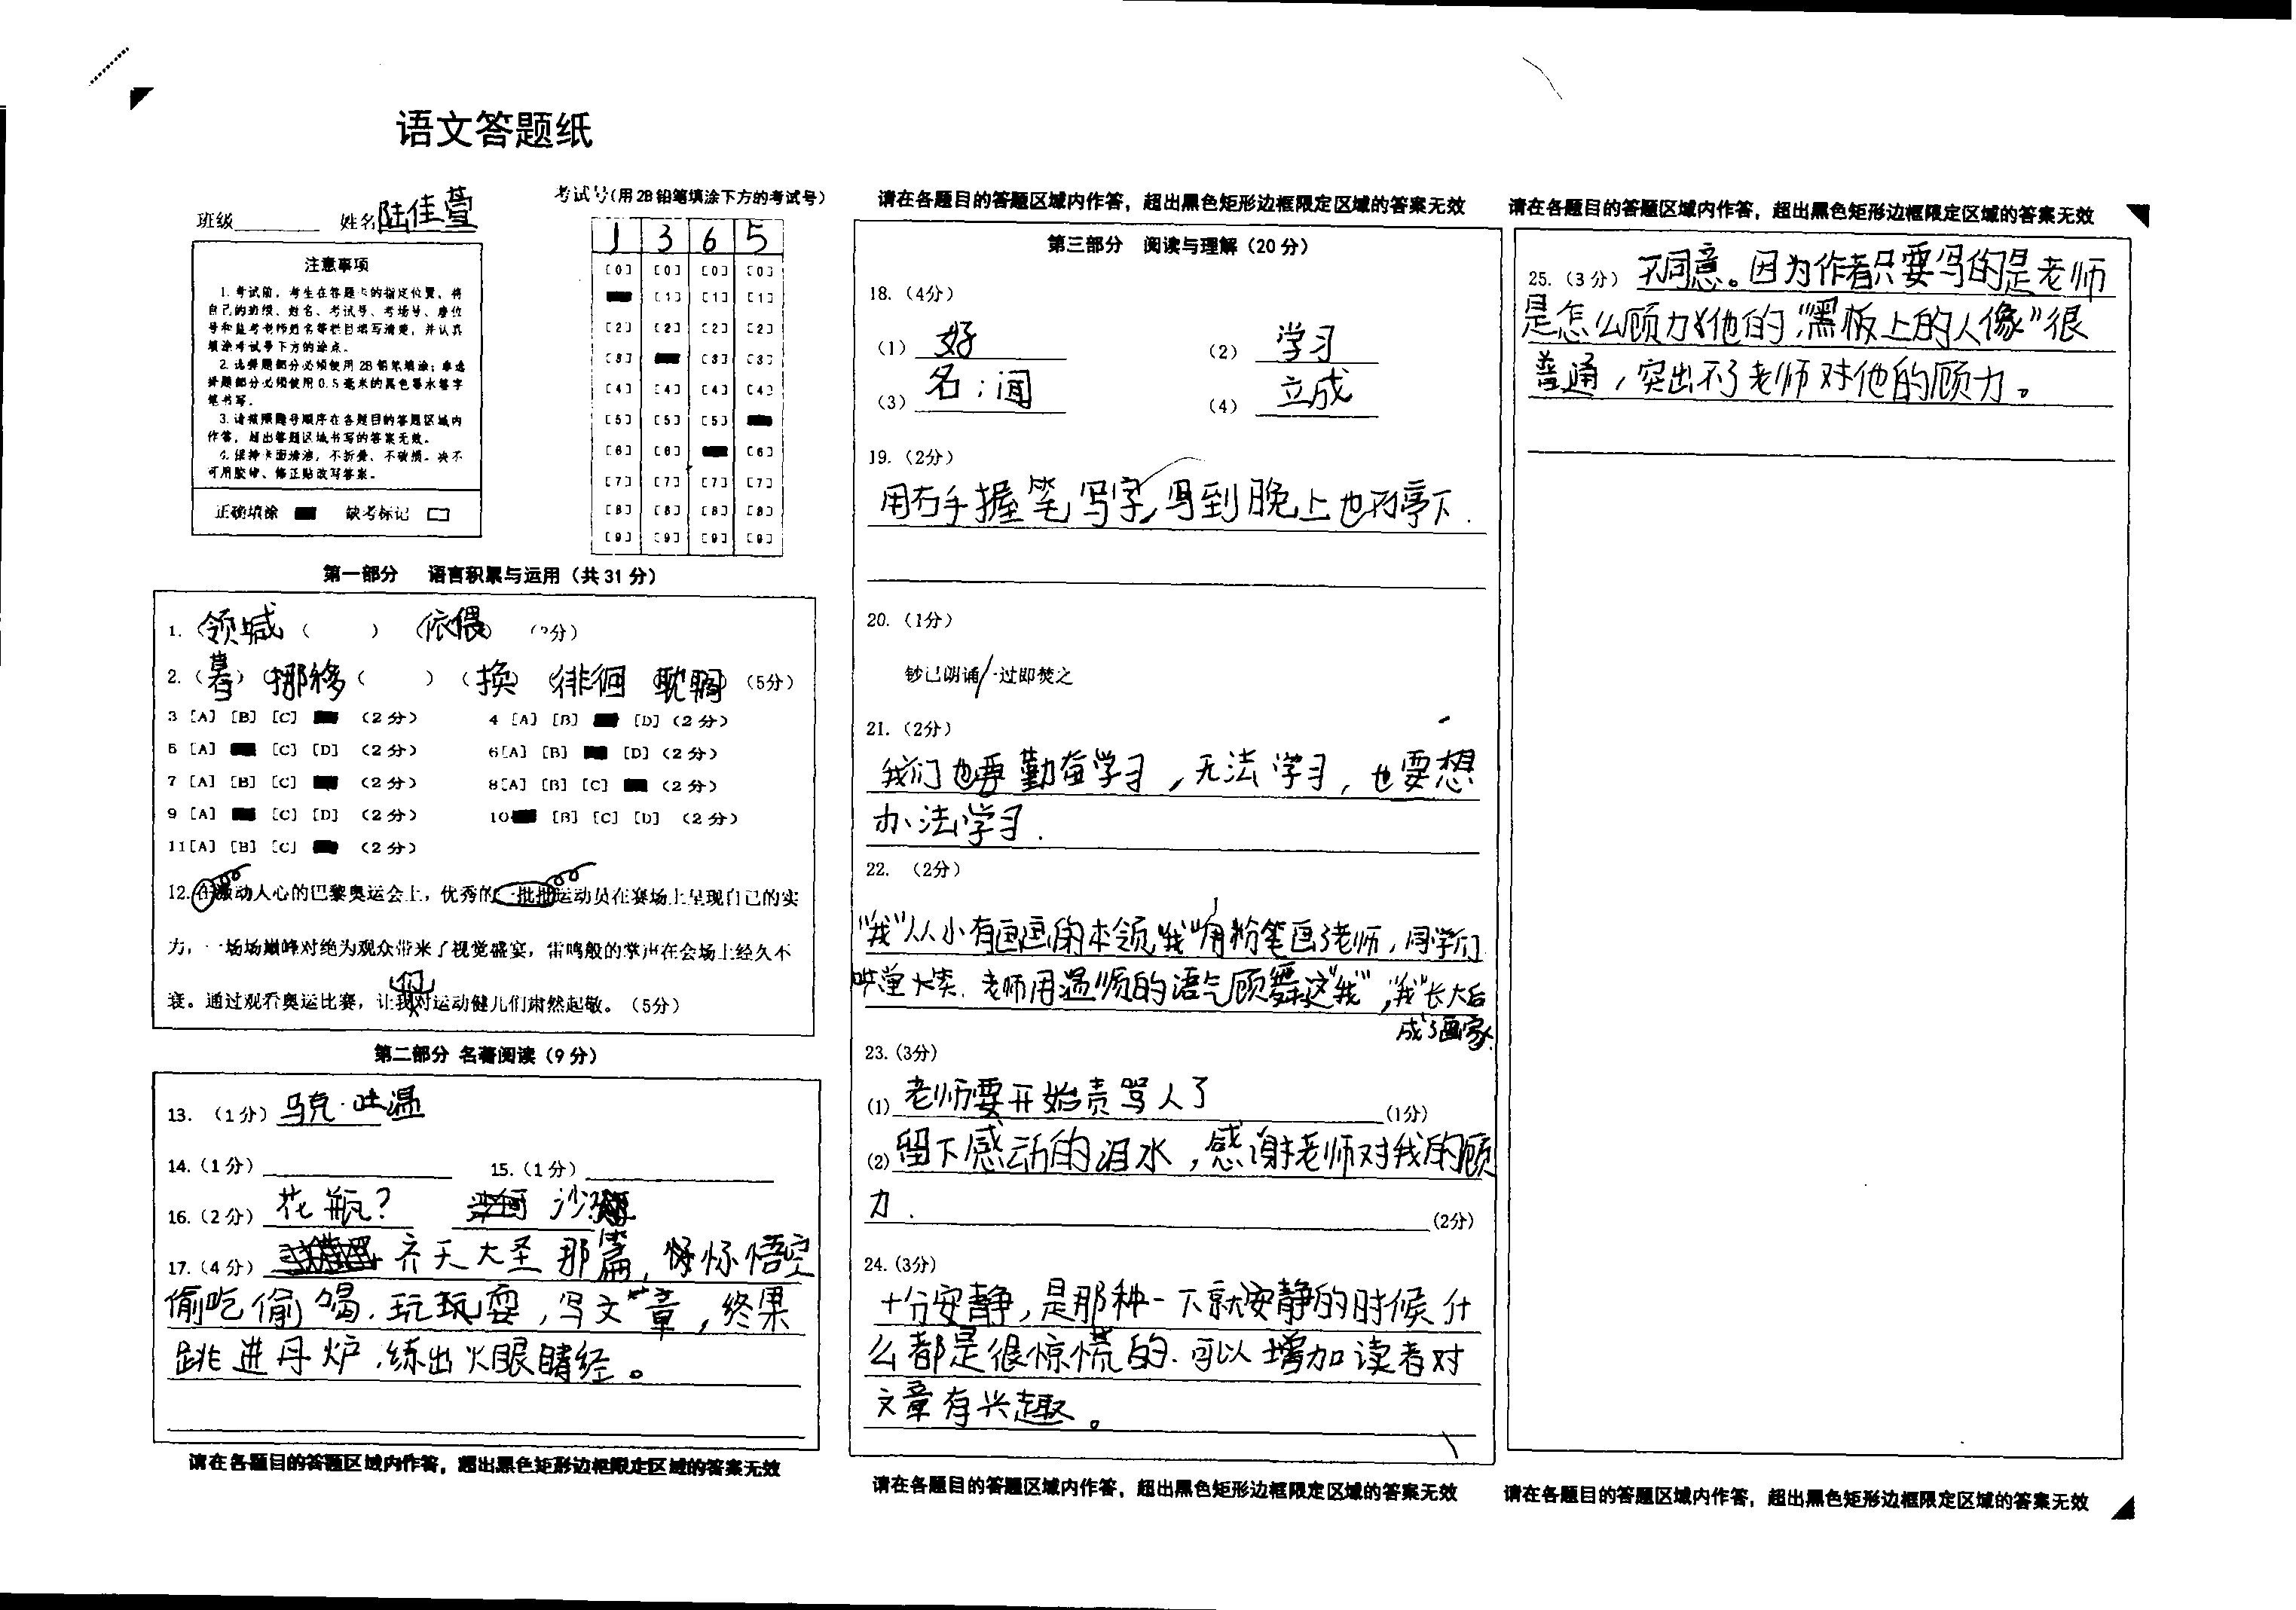 语文答题纸
班级 姓名 陆佳萱
考试号(用2B铅笔填涂下方的考试号)
1 3 6 5
[0] [0] [0] [0]
[1] [1] [1]
[2] [2] [2] [2]
[3] [3] [3]
[4] [4] [4] [4]
[5] [5] [5]
[6] [6] [6]
[7] [7] [7] [7]
[8] [8] [8] [8]
[9] [9] [9] [9]
注意事项
1. 考试前，考生在答题卡的指定位置，将
自己的班级、姓名、考试号、考场号、座位
号和监考老师姓名等栏目填写清楚，并认真
填涂考试号下方的涂点。
2. 选择题部分必须使用2B铅笔填涂；非选
择题部分必须使用0.5毫米的黑色墨水签字
笔书写。
3. 请按照题号顺序在各题目的答题区域内
作答，超出答题区域书写的答案无效。
4. 保持卡面清洁，不折叠、不破损。决不
可用胶带、修正贴改写答案。
正确填涂 缺考标记
第一部分 语言积累与运用（共31分）
1. （领域（ ） （依偎） （2分）
2. （暮）（挪移（ ）（换）（徘徊 耽搁）（5分）
3 [A] [B] [C] （2分） 4 [A] [B] [D]（2分）
5 [A] [C] [D] （2分） 6[A] [B] [D]（2分）
7 [A] [B] [C] （2分） 8[A] [B] [C] （2分）
9 [A] [C] [D] （2分） 10 [B] [C] [D] （2分）
11[A] [B] [C] （2分）
12.在激动人心的巴黎奥运会上，优秀的一批批运动员在赛场上呈现自己的实
力，一场场巅峰对绝为观众带来了视觉盛宴，雷鸣般的掌声在会场上经久不
们
衰。通过观看奥运比赛，让我对运动健儿们肃然起敬。（5分）
第二部分 名著阅读（9分）
13. （1分）马克·吐温
14.（1分） 15.（1分）
16.（2分） 花瓶？ 沙
17.（4分） 齐天大圣那篇，悟空
偷吃偷喝，玩玩耍，写文章，终果
跳进丹炉，练出火眼睛经。
请在各题目的答题区域内作答，超出黑色矩形边框限定区域的答案无效
请在各题目的答题区域内作答，超出黑色矩形边框限定区域的答案无效
第三部分 阅读与理解（20分）
18.（4分）
（1） 好 （2） 学习
（3） 名；闻 （4） 立成
19.（2分）
用右手握笔写字，写到晚上也不停下.
20.（1分）
钞已朗诵/一过即焚之
21.（2分）
我们也要勤奋学习，无法学习，也要想
办法学习.
22. （2分）
“我”从小有画画的本领，“我”用粉笔画了老师，同学们
哄堂大笑. 老师用温顺的语气顾舞这“我”，“我”长大后
成了画家.
23.（3分）
（1）老师要开始责骂人了 （1分）
（2）留下感动的泪水，感谢老师对我的顾
力. （2分）
24.（3分）
十分安静，是那种一下就安静的时候什
么都是很惊慌的. 可以增加读者对
文章有兴趣。
请在各题目的答题区域内作答，超出黑色矩形边框限定区域的答案无效
请在各题目的答题区域内作答，超出黑色矩形边框限定区域的答案无效
25.（3分） 不同意。因为作者只要写的是老师
是怎么顾力他的，“黑板上的人像”很
普通，突出不了老师对他的顾力。
请在各题目的答题区域内作答，超出黑色矩形边框限定区域的答案无效